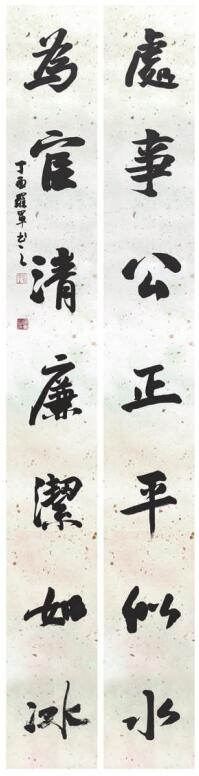 處事公正平似水
為官清廉潔如冰
丁酉羅軍书之